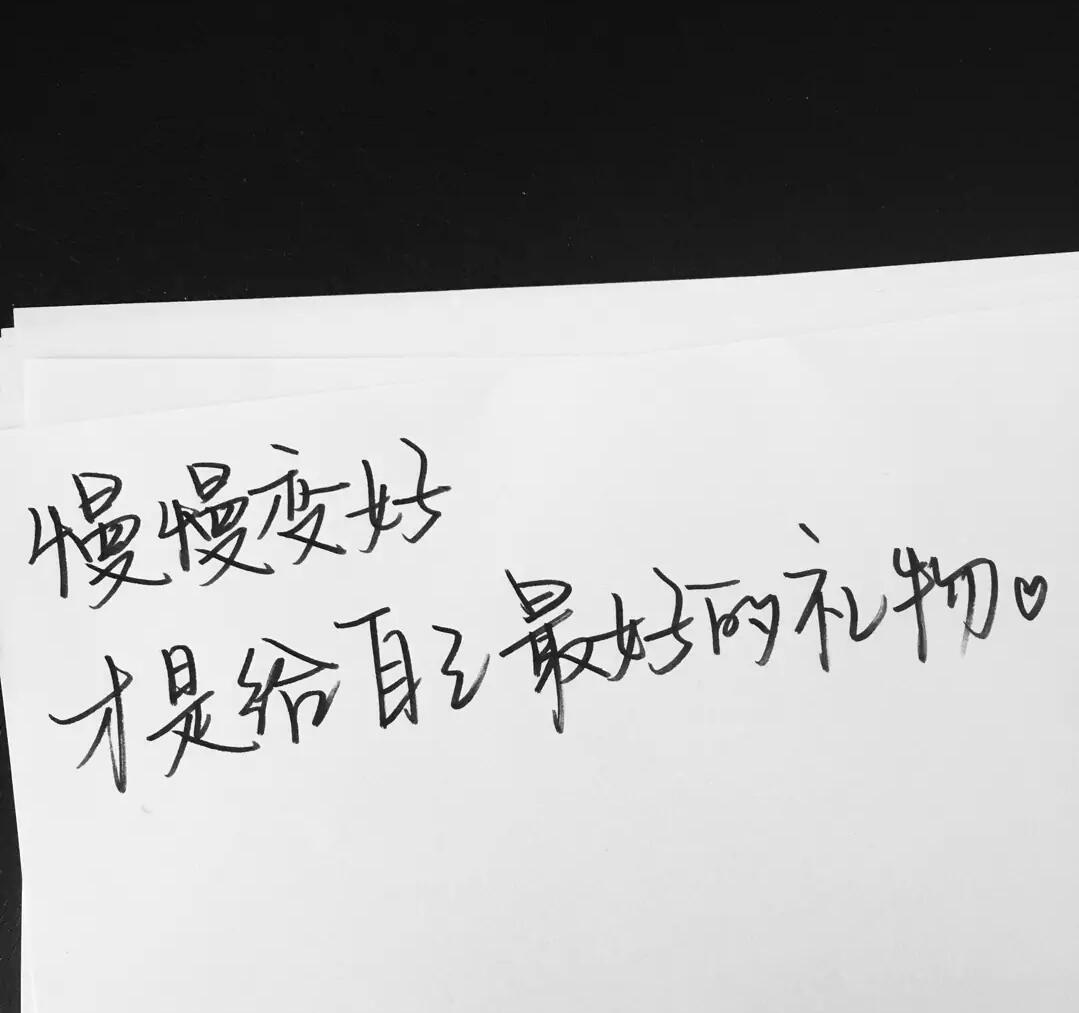 慢慢变好
才是给自己最好的礼物♡